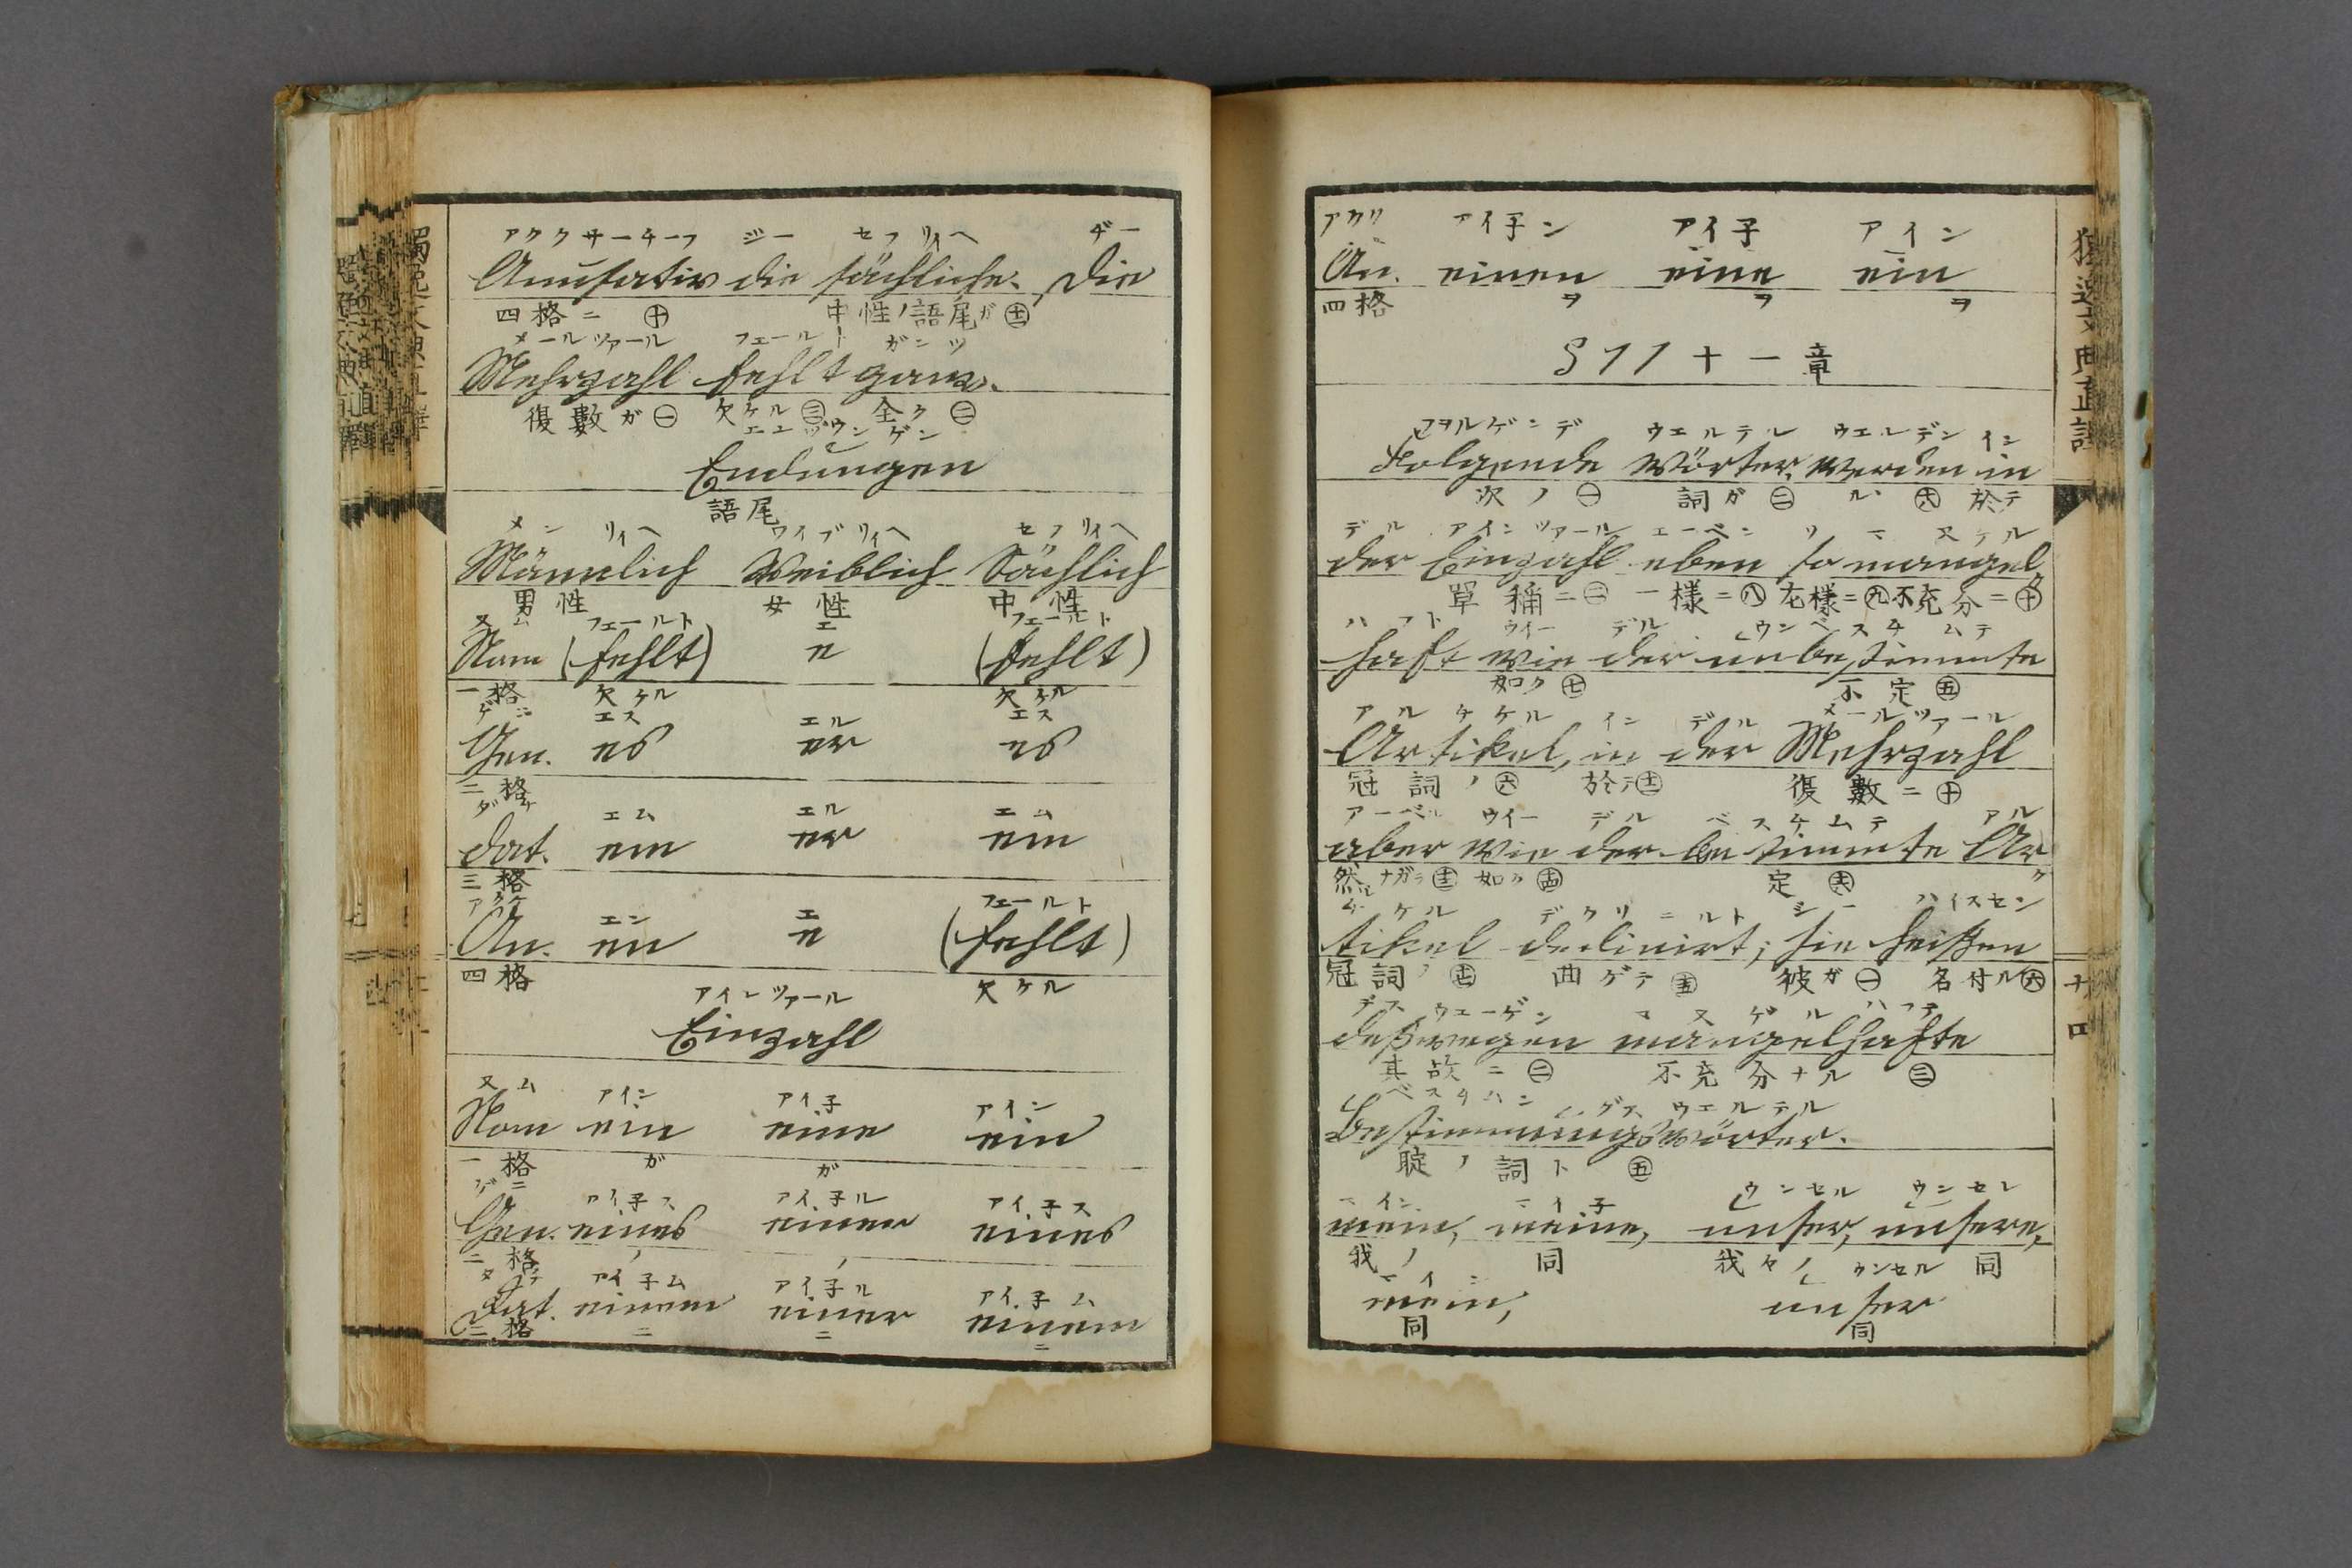 アククサーチーフ ジー セフリィヘ ヂー
Accusativ die sächliche. Die
四格ニ ㊉ 中性ノ語尾ガ
メールツァール フェールト ガンツ
Mehrzahl fehlt ganz.
復數ガ ㊀ 欠ケル ㊂ 全ク ㊁
エンヅウンゲン
Endungen
語尾
メンリィヘ ワイブリィヘ セフリィヘ
Männlich Weiblich Sächlich
男性 女性 中性
ヌム フェールト エ フェールト
Nom (fehlt) e (fehlt)
一格 欠ケル 欠ケル
ゲニ エス エル エス
Gen. es er es
二格
ダテ エム エル エム
Dat. em er em
三格
アクケ エン エ フェールト
Ac. en e (fehlt)
四格 欠ケル
アインツァール
Einzahl
ヌム アイン アイ子 アイン
Nom ein eine ein
一格 ガ ガ
ゲニ アイ子ス アイ子ル アイ子ス
Gen. eines einer eines
二格 ノ ノ
ダテ アイ子ム アイ子ル アイ子ム
Dat. einem einer einem
三格 ニ ニ ニ
獨逸文典直譯
アクリ アイ子ン アイ子 アイン
Ac. einen eine ein
四格 ヲ ヲ ヲ
§11 十一章
フヲルゲンデ ウエルテル ウエルデン イン
Folgende Wörter werden in
次ノ ㊀ 詞ガ ㊁ ル 於テ
デル アインツァール エーベン ソ マヌケル
der Einzahl eben so mangel
單稱ニ ㊂ 一樣ニ ㊇ 左樣ニ ㊈ 不充分ニ ㊉
ハフト ウイー デル ウンベスチムテ
haft wie der unbestimmte
如ク ㊆ 不定 ㊄
アルチケル イン デル メールツァール
Artikel, in der Mehrzahl
冠詞ノ ㊅ 於テ 復數ニ ㊉
アーベル ウイー デル ベスチムテ アル
aber wie der bestimmte Ar
然シナガラ 如ク 定
チケル デクリニルト ジー ハイスセン
tikel declinirt; sie heißen
冠詞ノ 曲ゲテ 彼ガ ㊀ 名付ル ㊅
デスウェーゲン マヌゲルハフテ
deßwegen mangelhafte
其故ニ ㊁ 不充分ナル ㊂
ベスチムンングス ウエルテル
Bestimmungswörter.
定ノ詞ト ㊄
マイン マイ子 ウンセル ウンセレ
mein, meine, unser, unsere,
我ノ 同 我々ノ 同
マイン ウンセル
mein, unser
同 同
十四